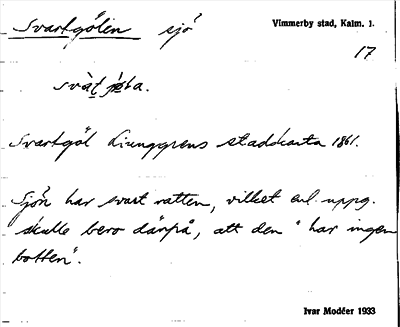 Svartgölen sjö
Vimmerby stad, Kalm. l.
17
Svartgöl Ljunggrens stadskarta 1861.
Sjön har svart vatten, vilket enl. uppg.
skulle bero därpå, att den "har ingen
botten".
Ivar Modéer 1933